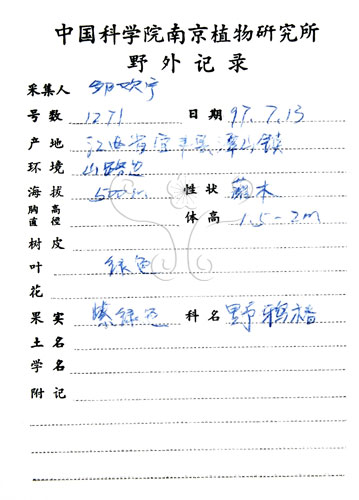 中国科学院南京植物研究所
野外记录
采集人 邹欢宁
号数 1271 日期 97.7.13
产地 江西省宜丰县潭山镇
环境 山路边
海拔 500m 性状 灌木
胸高直径 体高 1.5-2m
树皮
叶 绿色
花
果实 紫绿色 科名 野鸦椿
土名
学名
附记